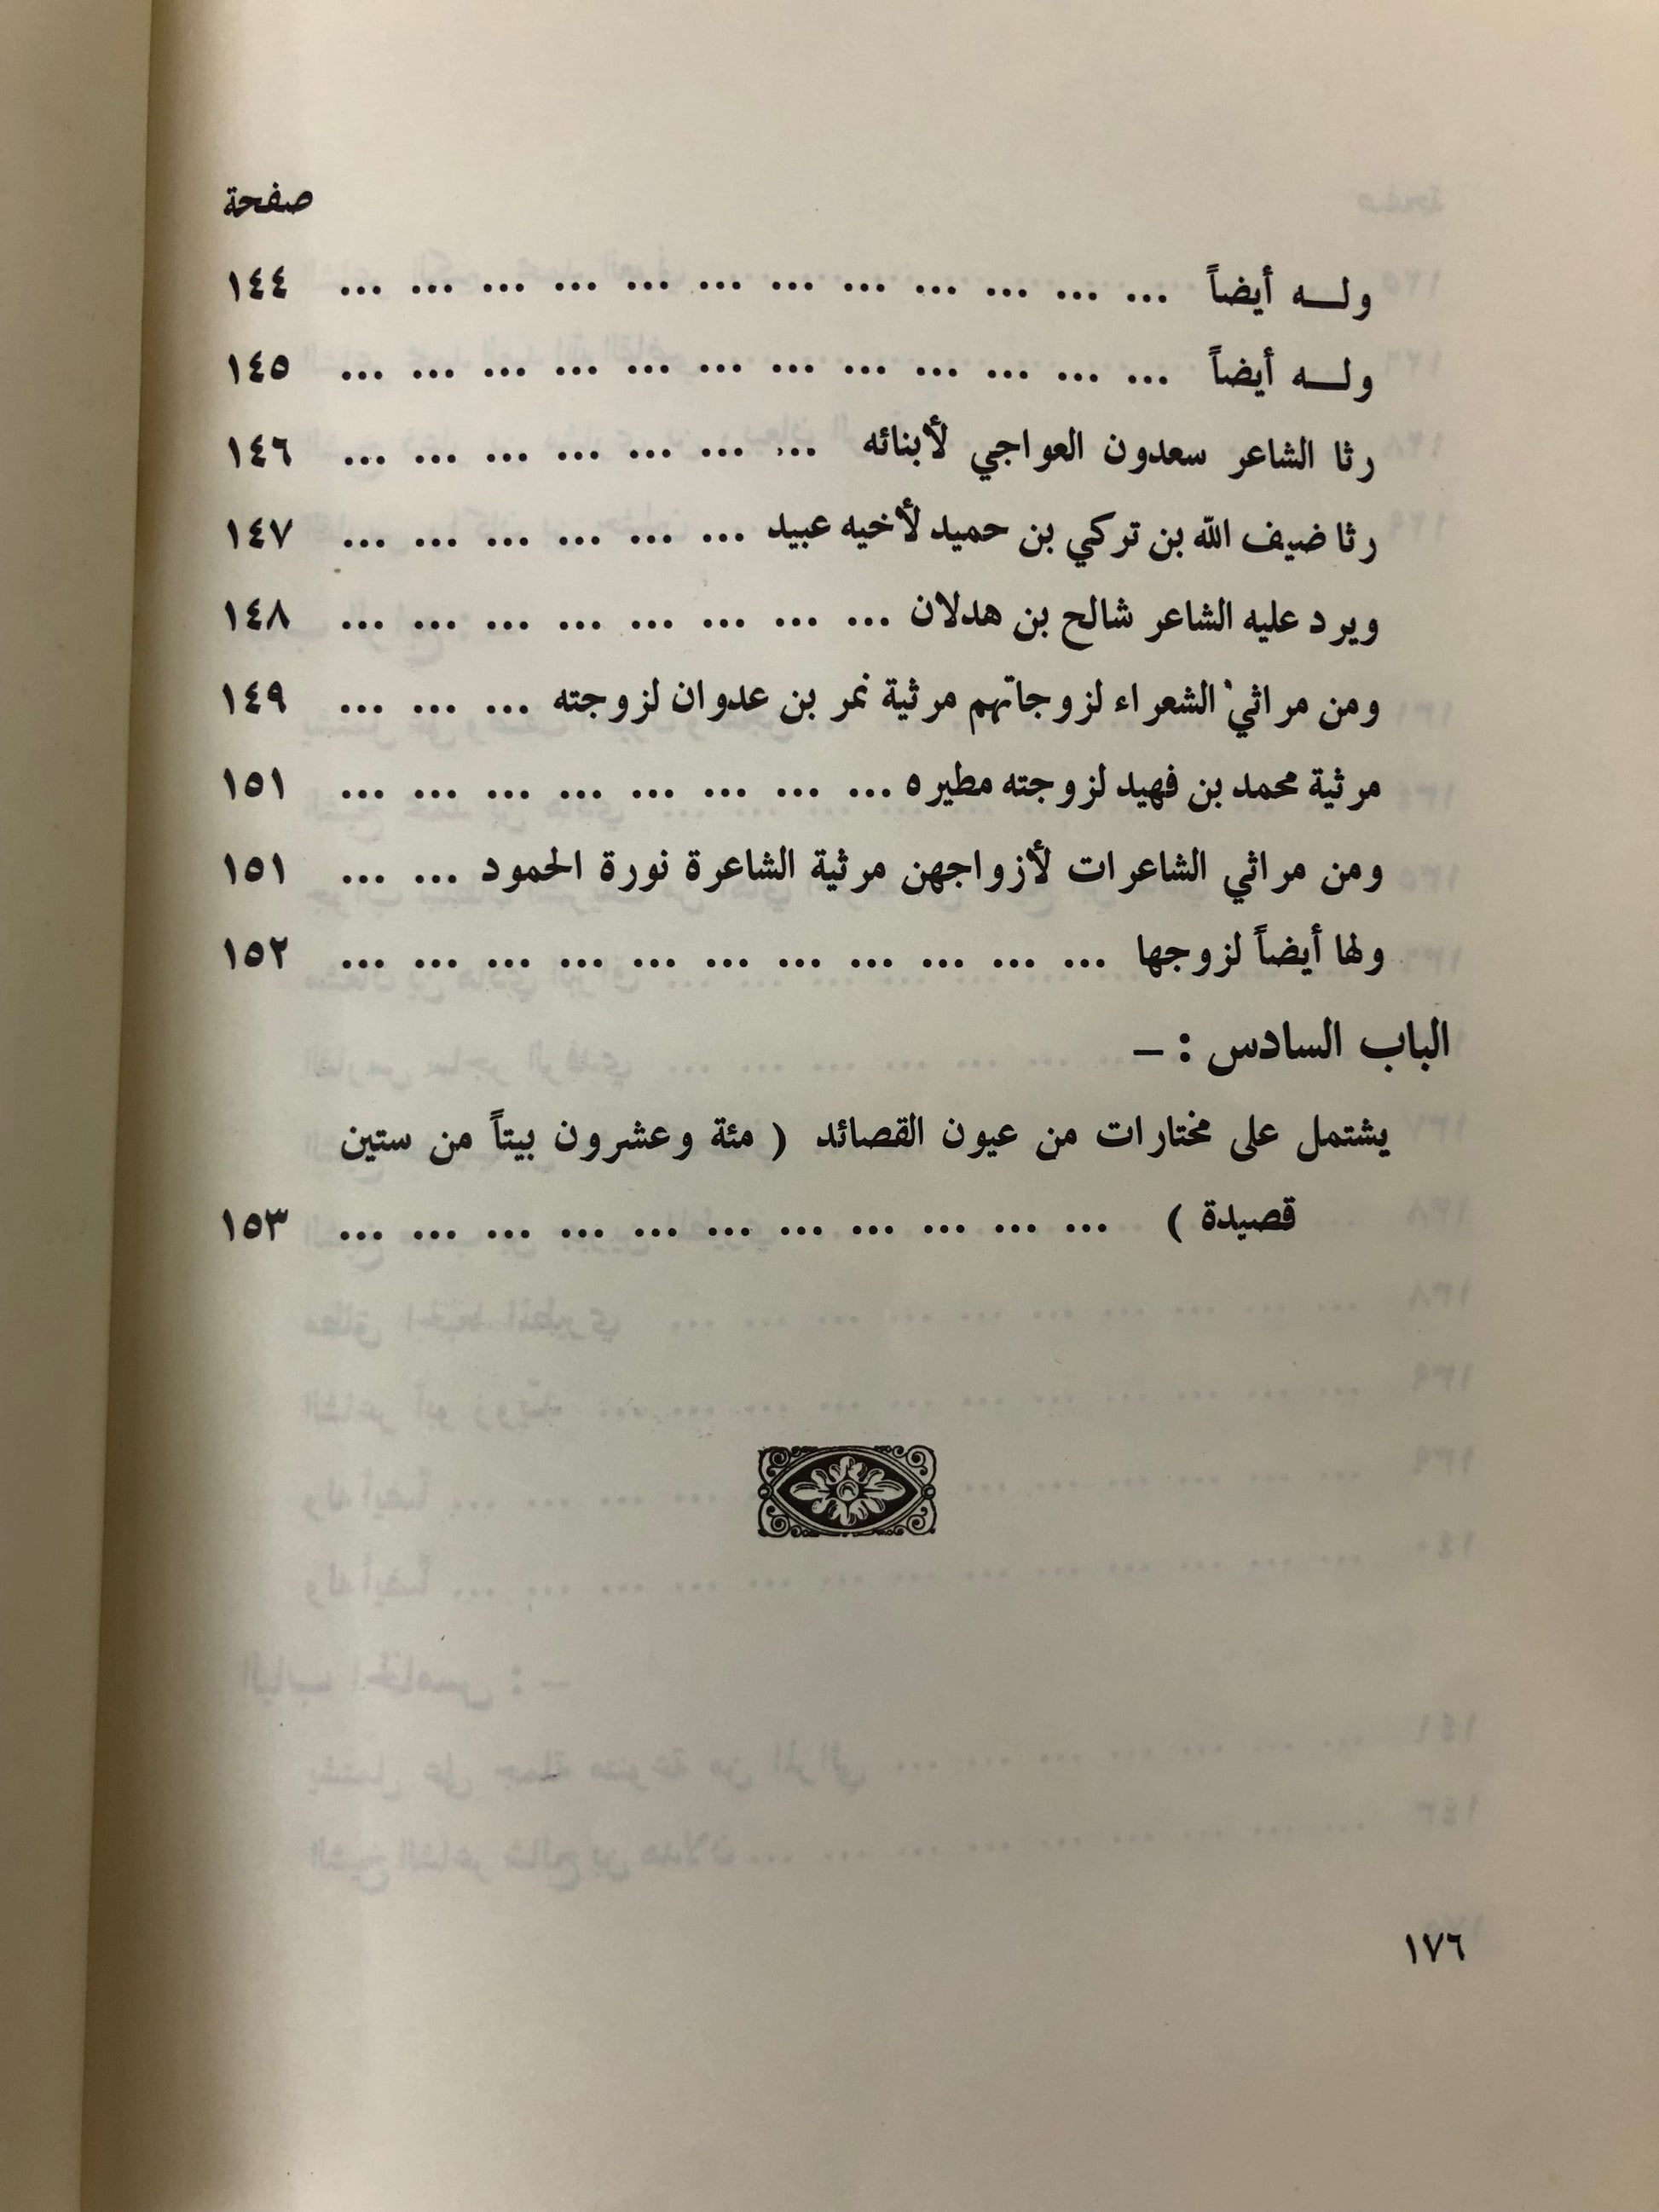 صفحة
ولـــه أيضاً ... ... ... ... ... ... ... ... ... ... ... ... ١٤٤
ولـــه أيضاً ... ... ... ... ... ... ... ... ... ... ... ... ١٤٥
رثا الشاعر سعدون العواجي لأبنائه ... ... ... ... ... ... ... ١٤٦
رثا ضيف الله بن تركي بن حميد لأخيه عبيد ... ... ... ... ... ... ١٤٧
ويرد عليه الشاعر شالح بن هدلان ... ... ... ... ... ... ... ... ١٤٨
ومن مراثي الشعراء لزوجاتهم مرثية نمر بن عدوان لزوجته ... ... ... ١٤٩
مرثية محمد بن فهيد لزوجته مطيره ... ... ... ... ... ... ... ... ١٥١
ومن مراثي الشاعرات لأزواجهن مرثية الشاعرة نورة الحمود ... ... ١٥١
ولها أيضاً لزوجها ... ... ... ... ... ... ... ... ... ... ... ١٥٢
الباب السادس : –
يشتمل على مختارات من عيون القصائد ( مئة وعشرون بيتاً من ستين
قصيدة ) ... ... ... ... ... ... ... ... ... ... ... ١٥٣
١٧٦